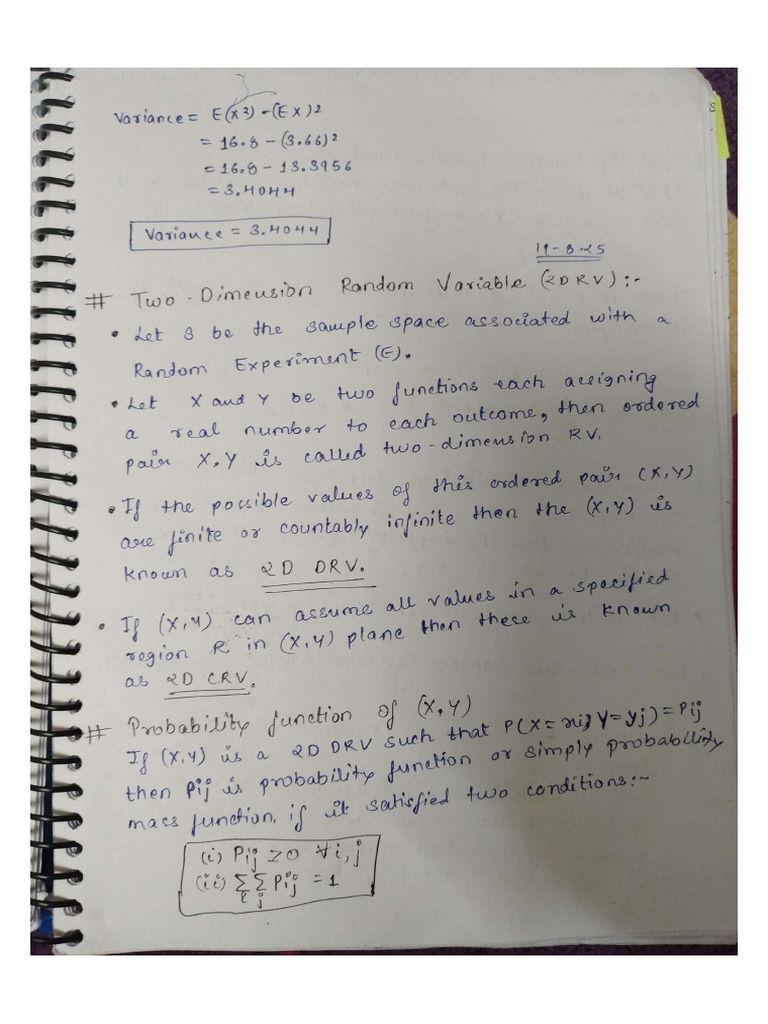 Variance = E(X²) - (EX)²
= 16.8 - (3.66)²
= 16.8 - 13.3956
= 3.4044
Variance = 3.4044
19-8-25
# Two-Dimension Random Variable (2DRV):-
• Let S be the sample space associated with a
Random Experiment (E).
• Let X and Y be two functions each assigning
a real number to each outcome, then ordered
pair X,Y is called two-dimension RV.
• If the possible values of this ordered pair (X,Y)
are finite or countably infinite then the (X,Y) is
known as 2D DRV.
• If (X,Y) can assume all values in a specified
region R in (X,Y) plane then there is known
as 2D CRV.
# Probability function of (X,Y)
If (X,Y) is a 2D DRV such that P(X=xi, Y=yj) = Pij
then Pij is probability function or simply probability
mass function, if it satisfied two conditions:-
(i) Pij ≥ 0 ∀ i,j
(ii) ∑i ∑j Pij = 1